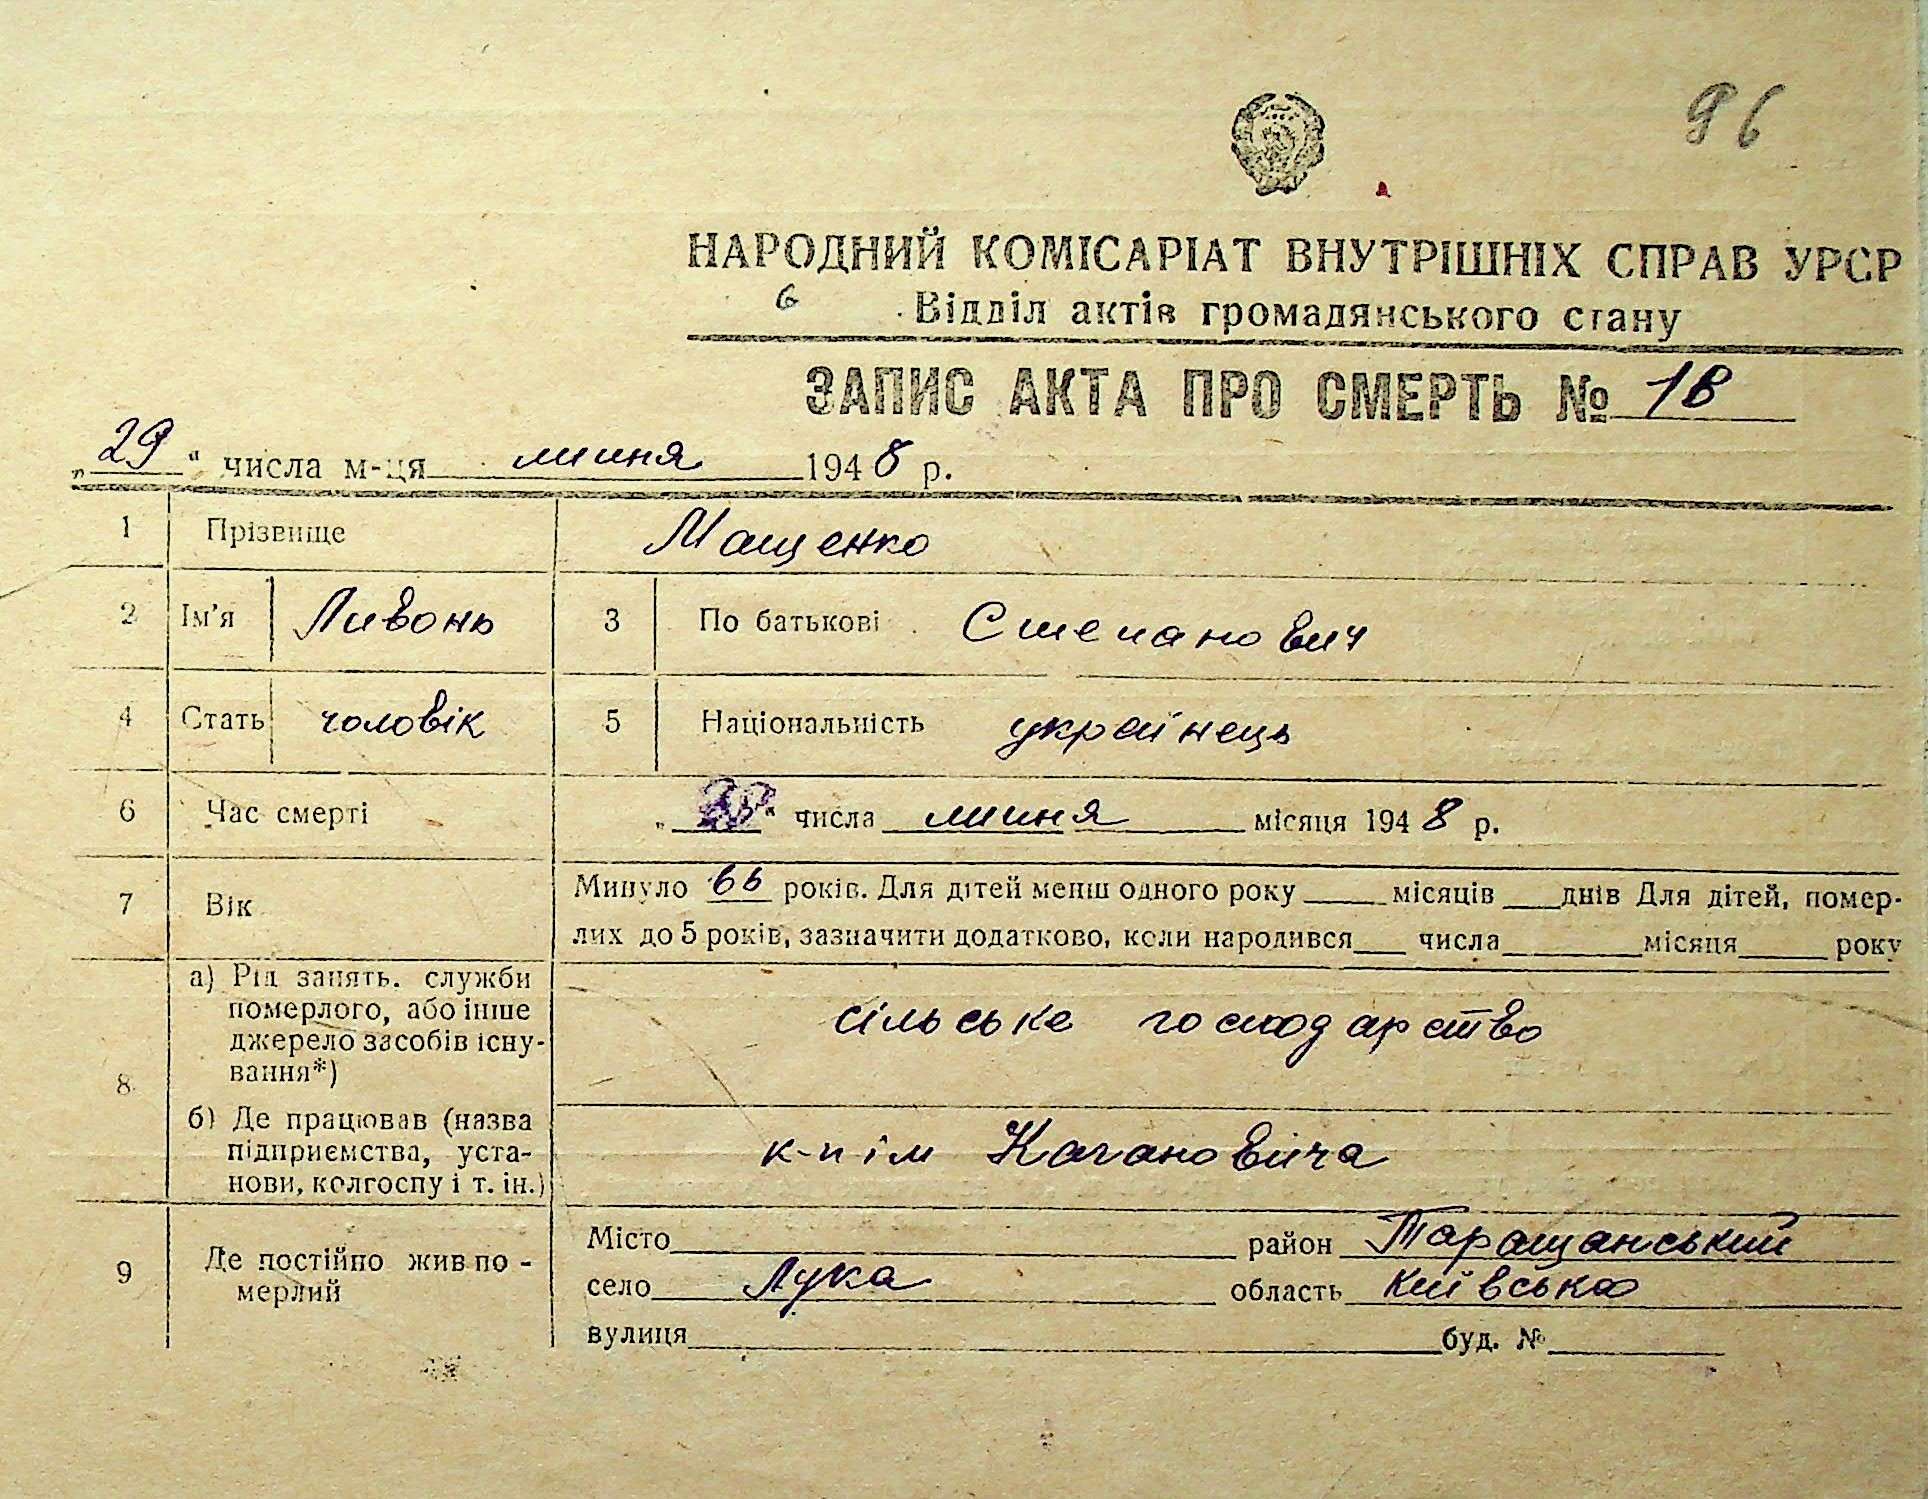 96
НАРОДНИЙ КОМІСАРІАТ ВНУТРІШНІХ СПРАВ УРСР
Відділ актів громадянського стану
ЗАПИС АКТА ПРО СМЕРТЬ № 18
„29“ числа м-ця липня 1948 р.
1 Прізвище Мащенко
2 Ім'я Ливонь 3 По батькові Степанович
4 Стать чоловік 5 Національність українець
6 Час смерті „ “ числа липня місяця 1948 р.
7 Вік Минуло 66 років. Для дітей менш одного року ____ місяців ___ днів Для дітей, помер-
лих до 5 років, зазначити додатково, коли народився ___ числа ______ місяця ____ року
8 а) Рід занять, служби
померлого, або інше
джерело засобів існу-
вання*) сільське господарство
б) Де працював (назва
підприємства, уста-
нови, колгоспу і т. ін.) к-п ім Кагановіча
9 Де постійно жив по-
мерлий
Місто район Таращанський
село Лука область Київська
вулиця буд. №